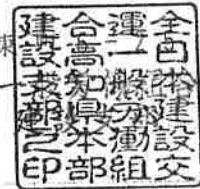 全日本建設交
運一般労働組
合高知県本部
建設支部之印